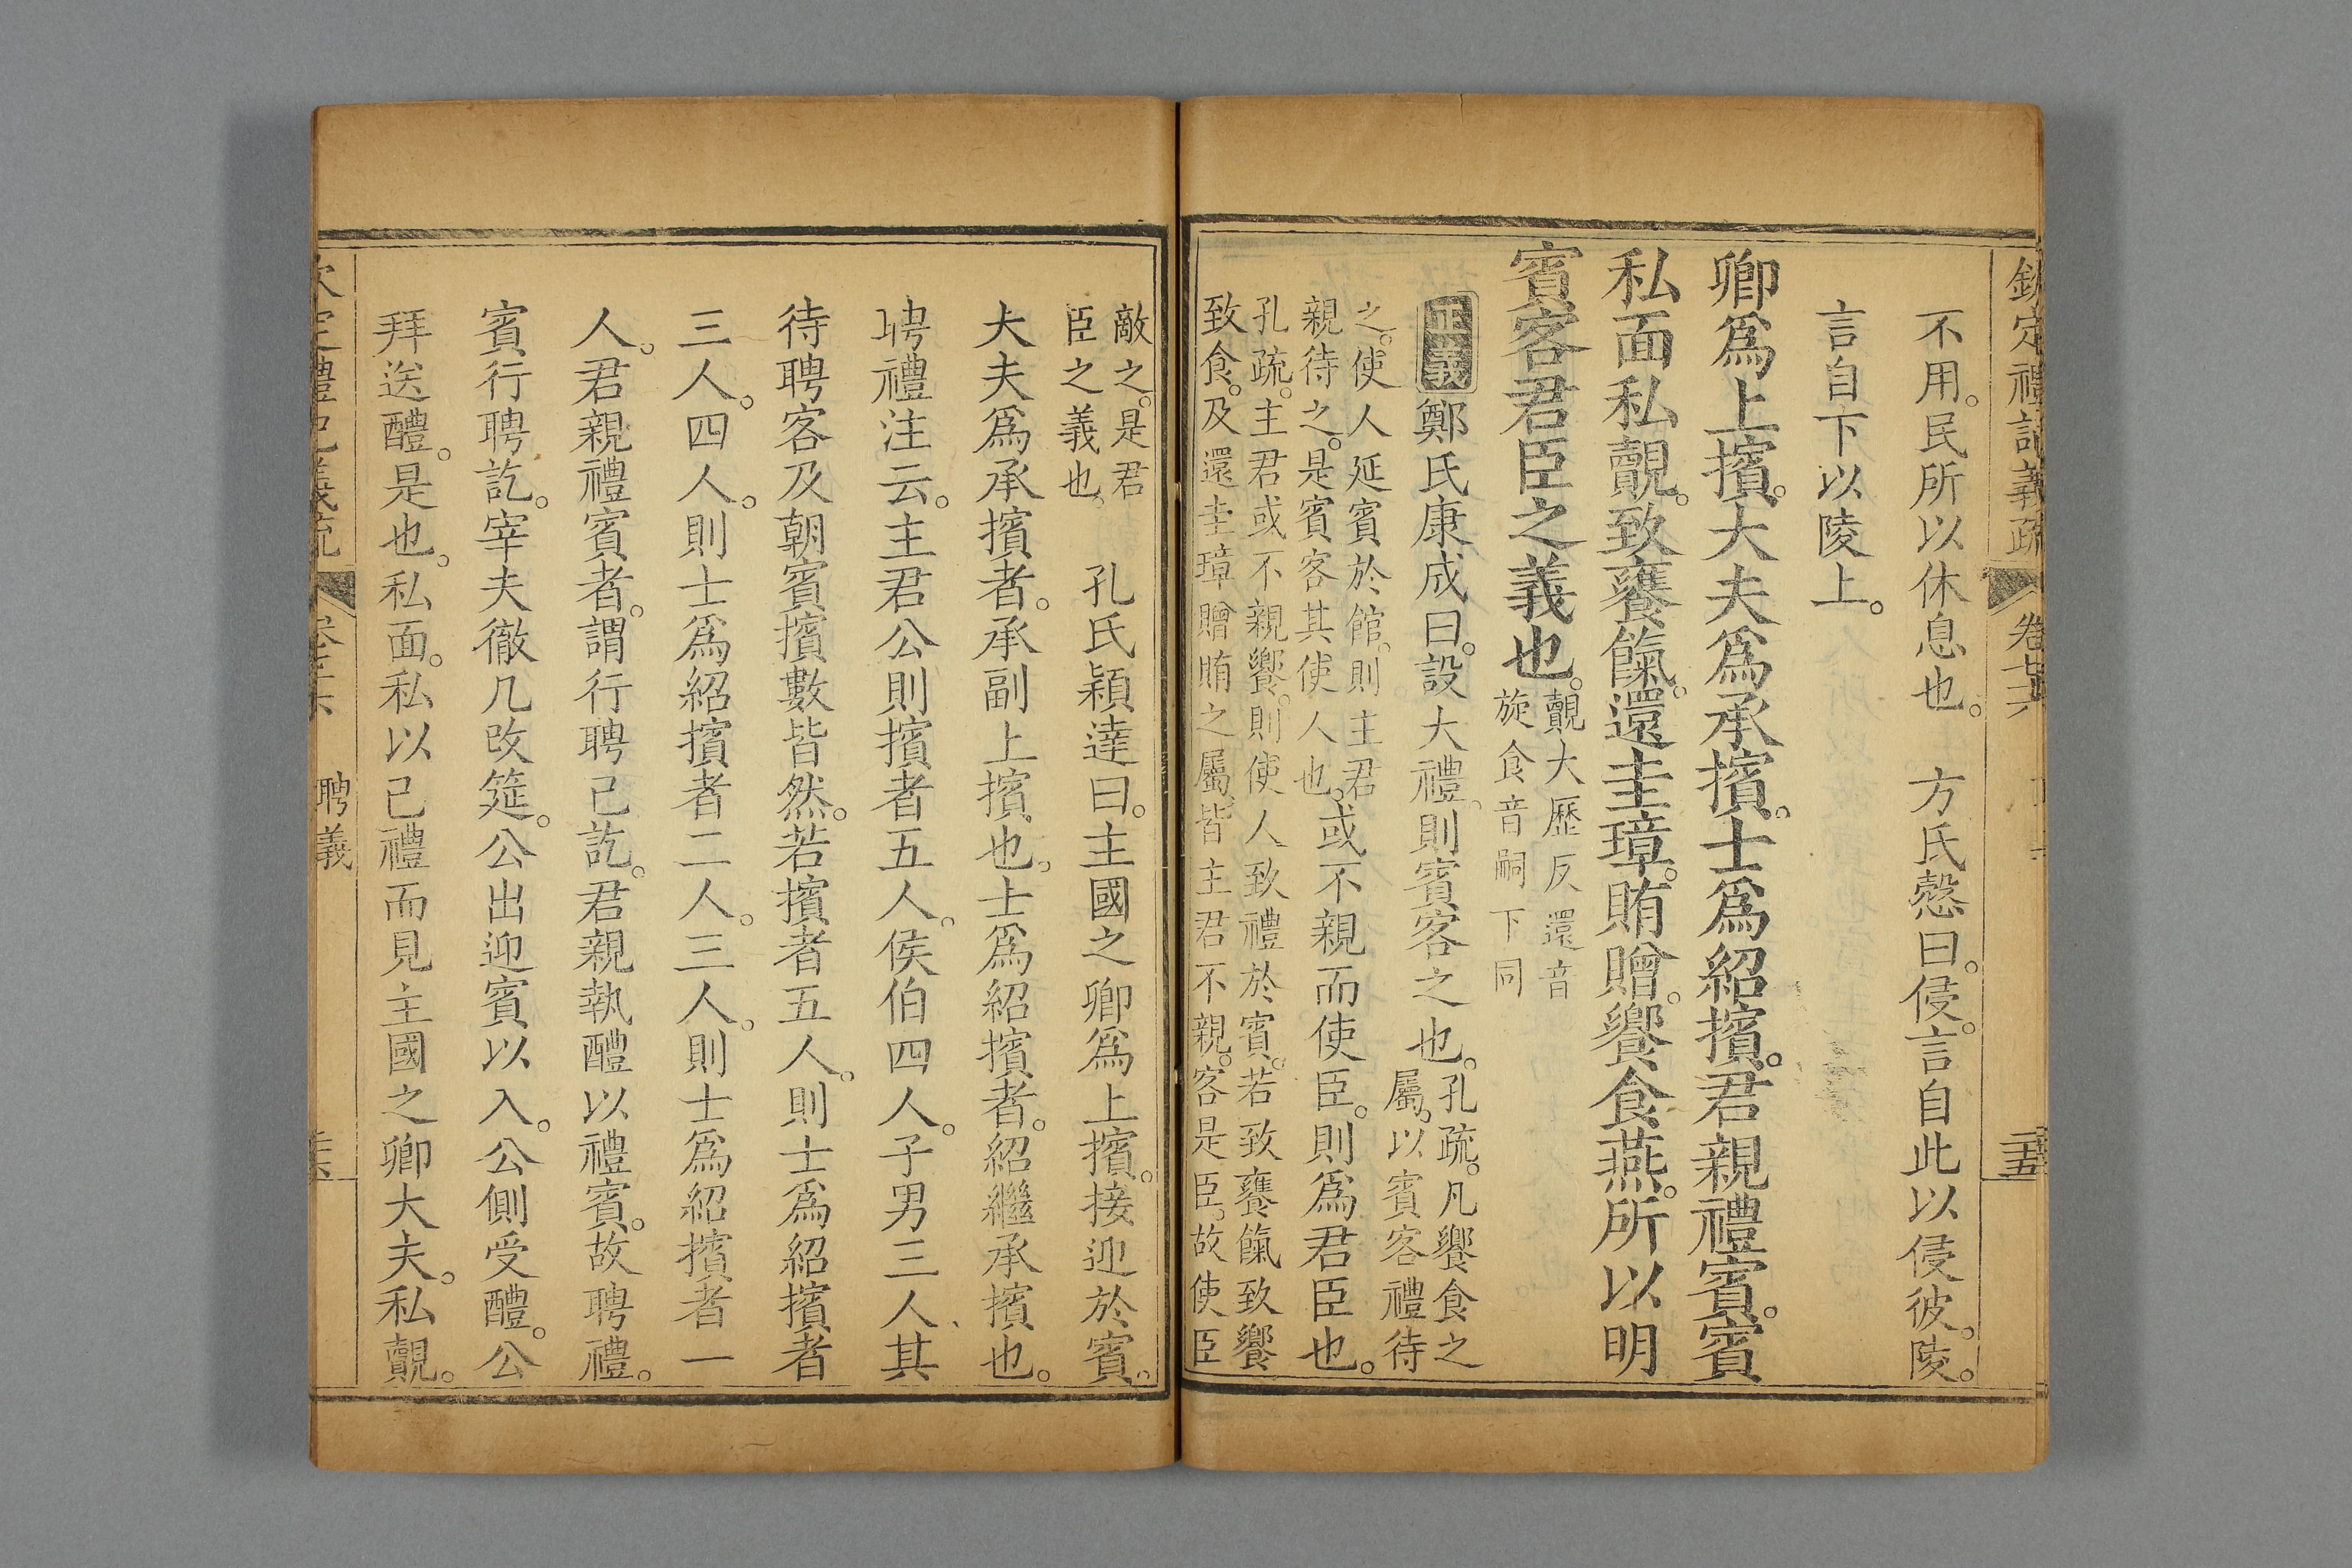 欽定禮記義疏 卷七十六
不用。民所以休息也。 方氏慤曰。侵。言自此以侵彼。陵。
言自下以陵上。
卿爲上擯。大夫爲承擯。士爲紹擯。君親禮賓。賓
私面私覿。致饔餼。還圭璋。賄贈。饗食燕。所以明
賓客君臣之義也。
覿大歷反還音
旋食音嗣下同
正義鄭氏康成曰。設大禮。則賓客之也。
孔疏。凡饗食之
屬。以賓客禮待
之。使人延賓於館。則主君
親待之。是賓客其使人也。
或不親而使臣。則爲君臣也。
孔疏。主君或不親饗。則使人致禮於賓。若致饔餼致饗
致食。及還圭璋贈賄之屬。皆主君不親。客是臣。故使臣
敵之。是君
臣之義也。
孔氏穎達曰。主國之卿爲上擯。接迎於賓。
大夫爲承擯者。承副上擯也。士爲紹擯者。紹繼承擯也。
聘禮注云。主君公則擯者五人。侯伯四人。子男三人、其
待聘客及朝賓擯數皆然。若擯者五人。則士爲紹擯者
三人。四人。則士爲紹擯者二人。三人。則士爲紹擯者一
人。君親禮賓者。謂行聘已訖。君親執醴以禮賓。故聘禮。
賓行聘訖。宰夫徹几改筵。公出迎賓以入。公側受醴。公
拜送醴。是也。私面。私以己禮而見主國之卿大夫。私覿。
欽定禮記義疏 聘義